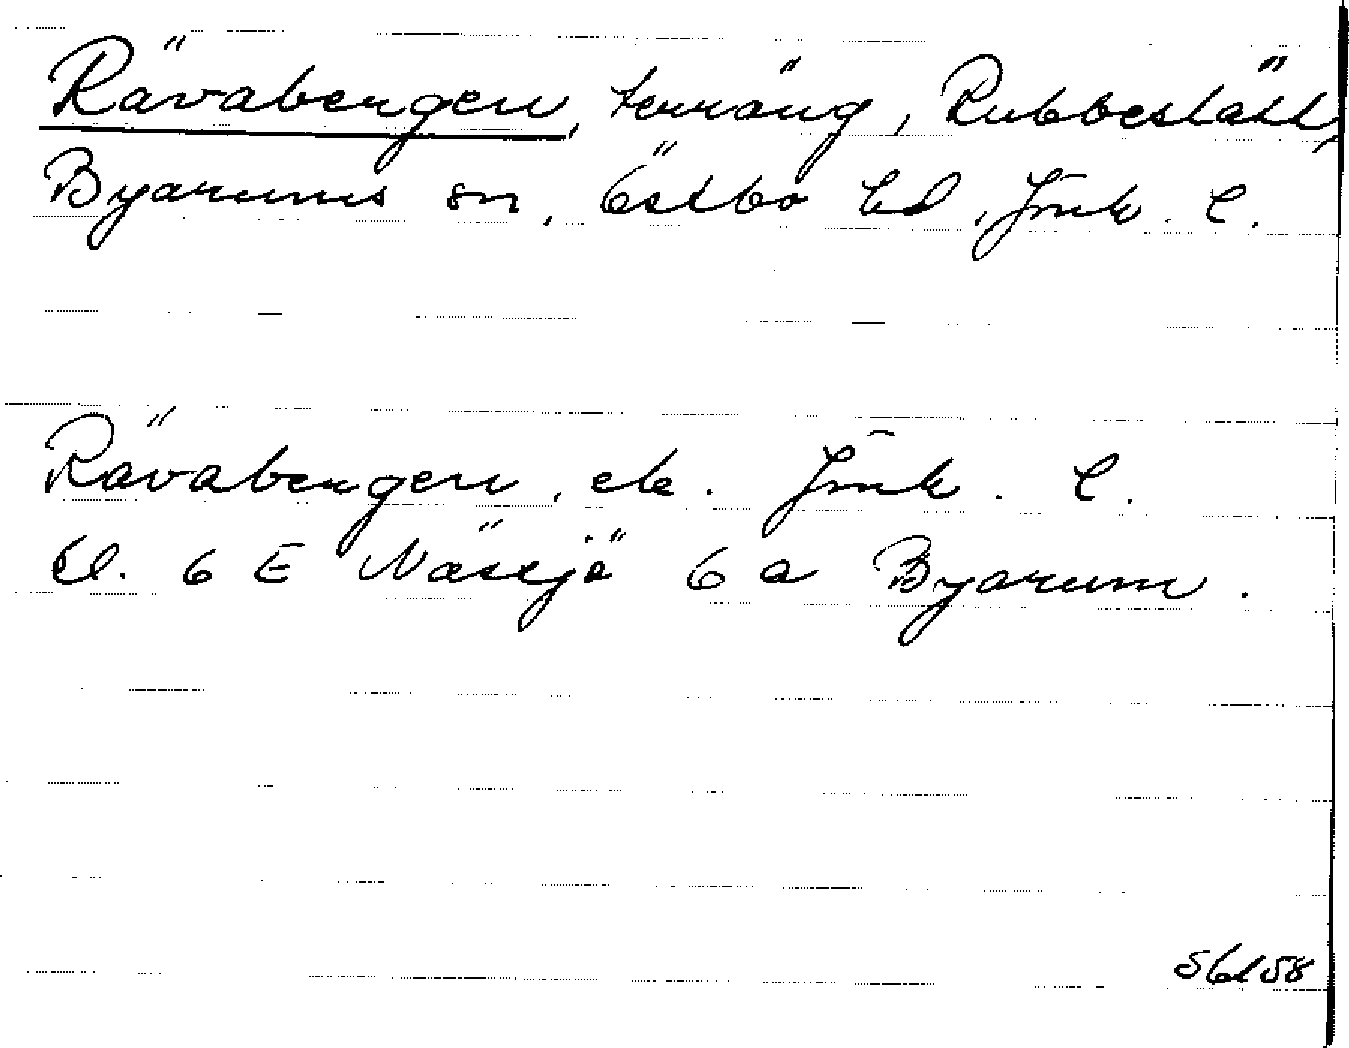 Rävabergen, terräng, Rubbeställ,
Byarums sn, Östbo hd, Jmk. l.
Rävabergen, ek. Jmk. l.
bl. 6 E Nässjö 6 a Byarum.